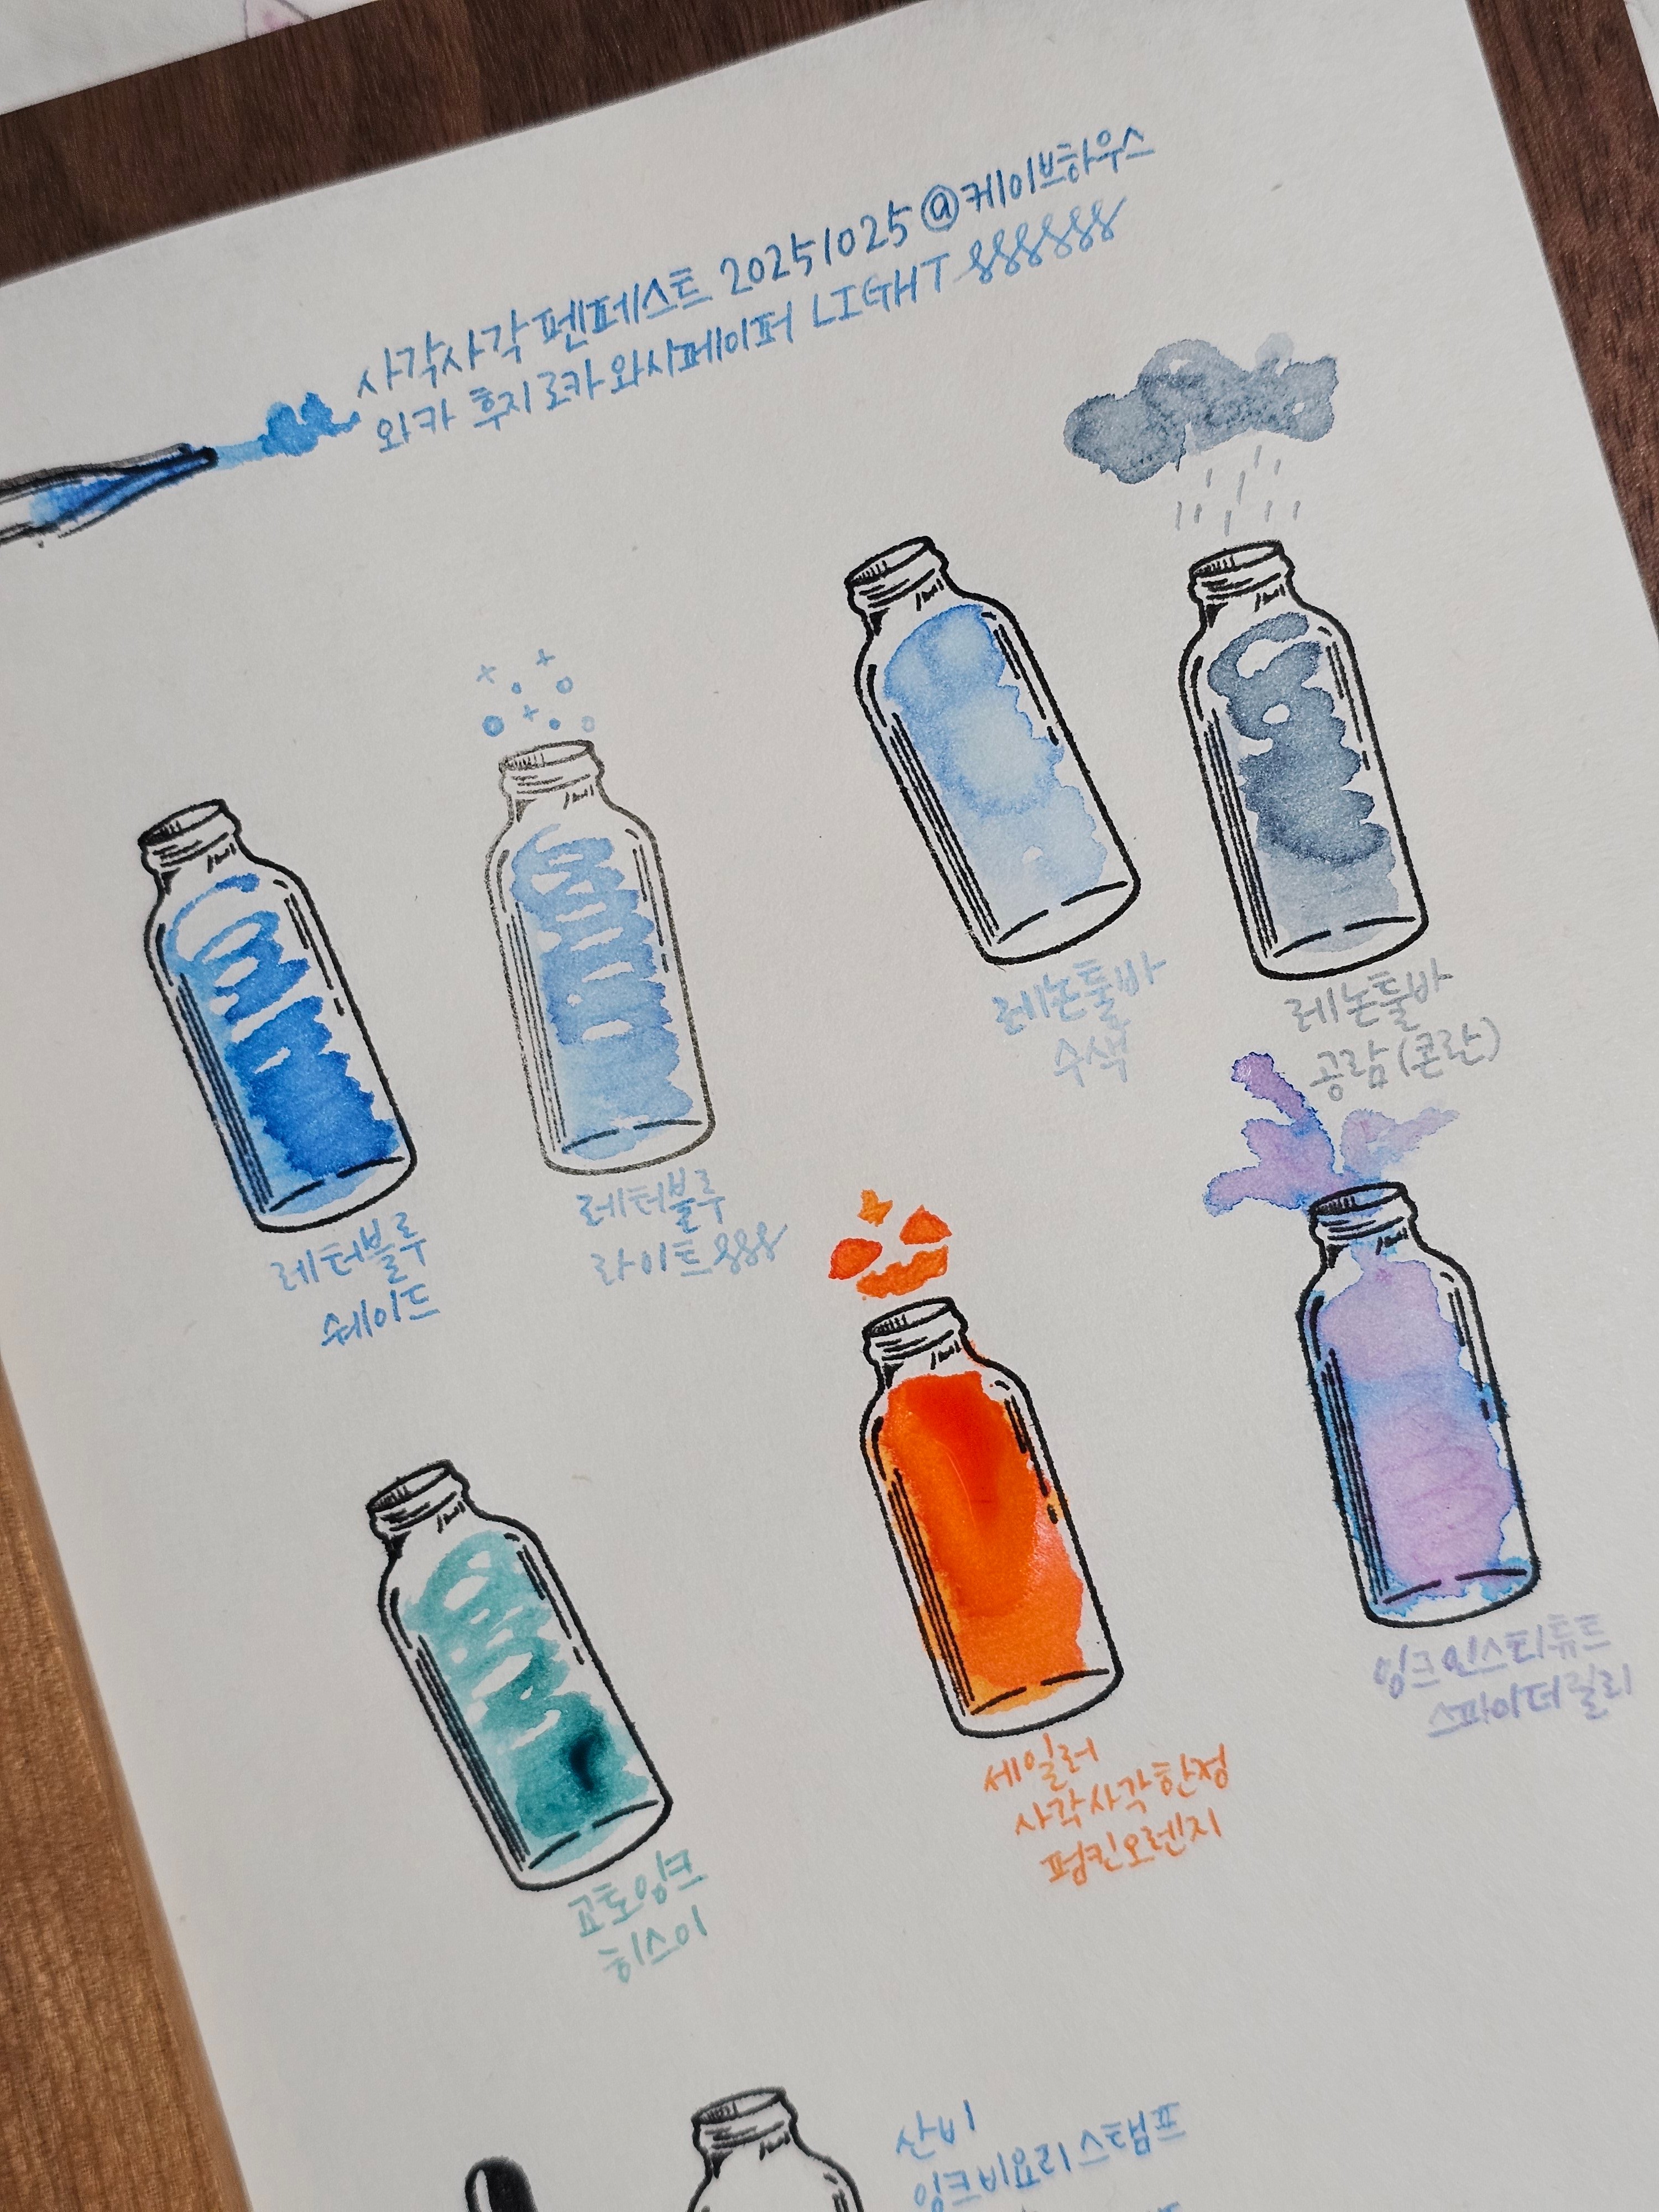 사각사각 펜페스트 20251025 @케이브하우스
와카 후지 로카와시페이퍼 LIGHT
레논툴바
수색
레논툴바
공람(콘란)
레터블루
쉐이드
레터블루
라이트
세일러
사각사각한정
펌킨오렌지
잉크인스티튜트
스파이더릴리
교토잉크
히스이
산비
잉크비요리 스탬프